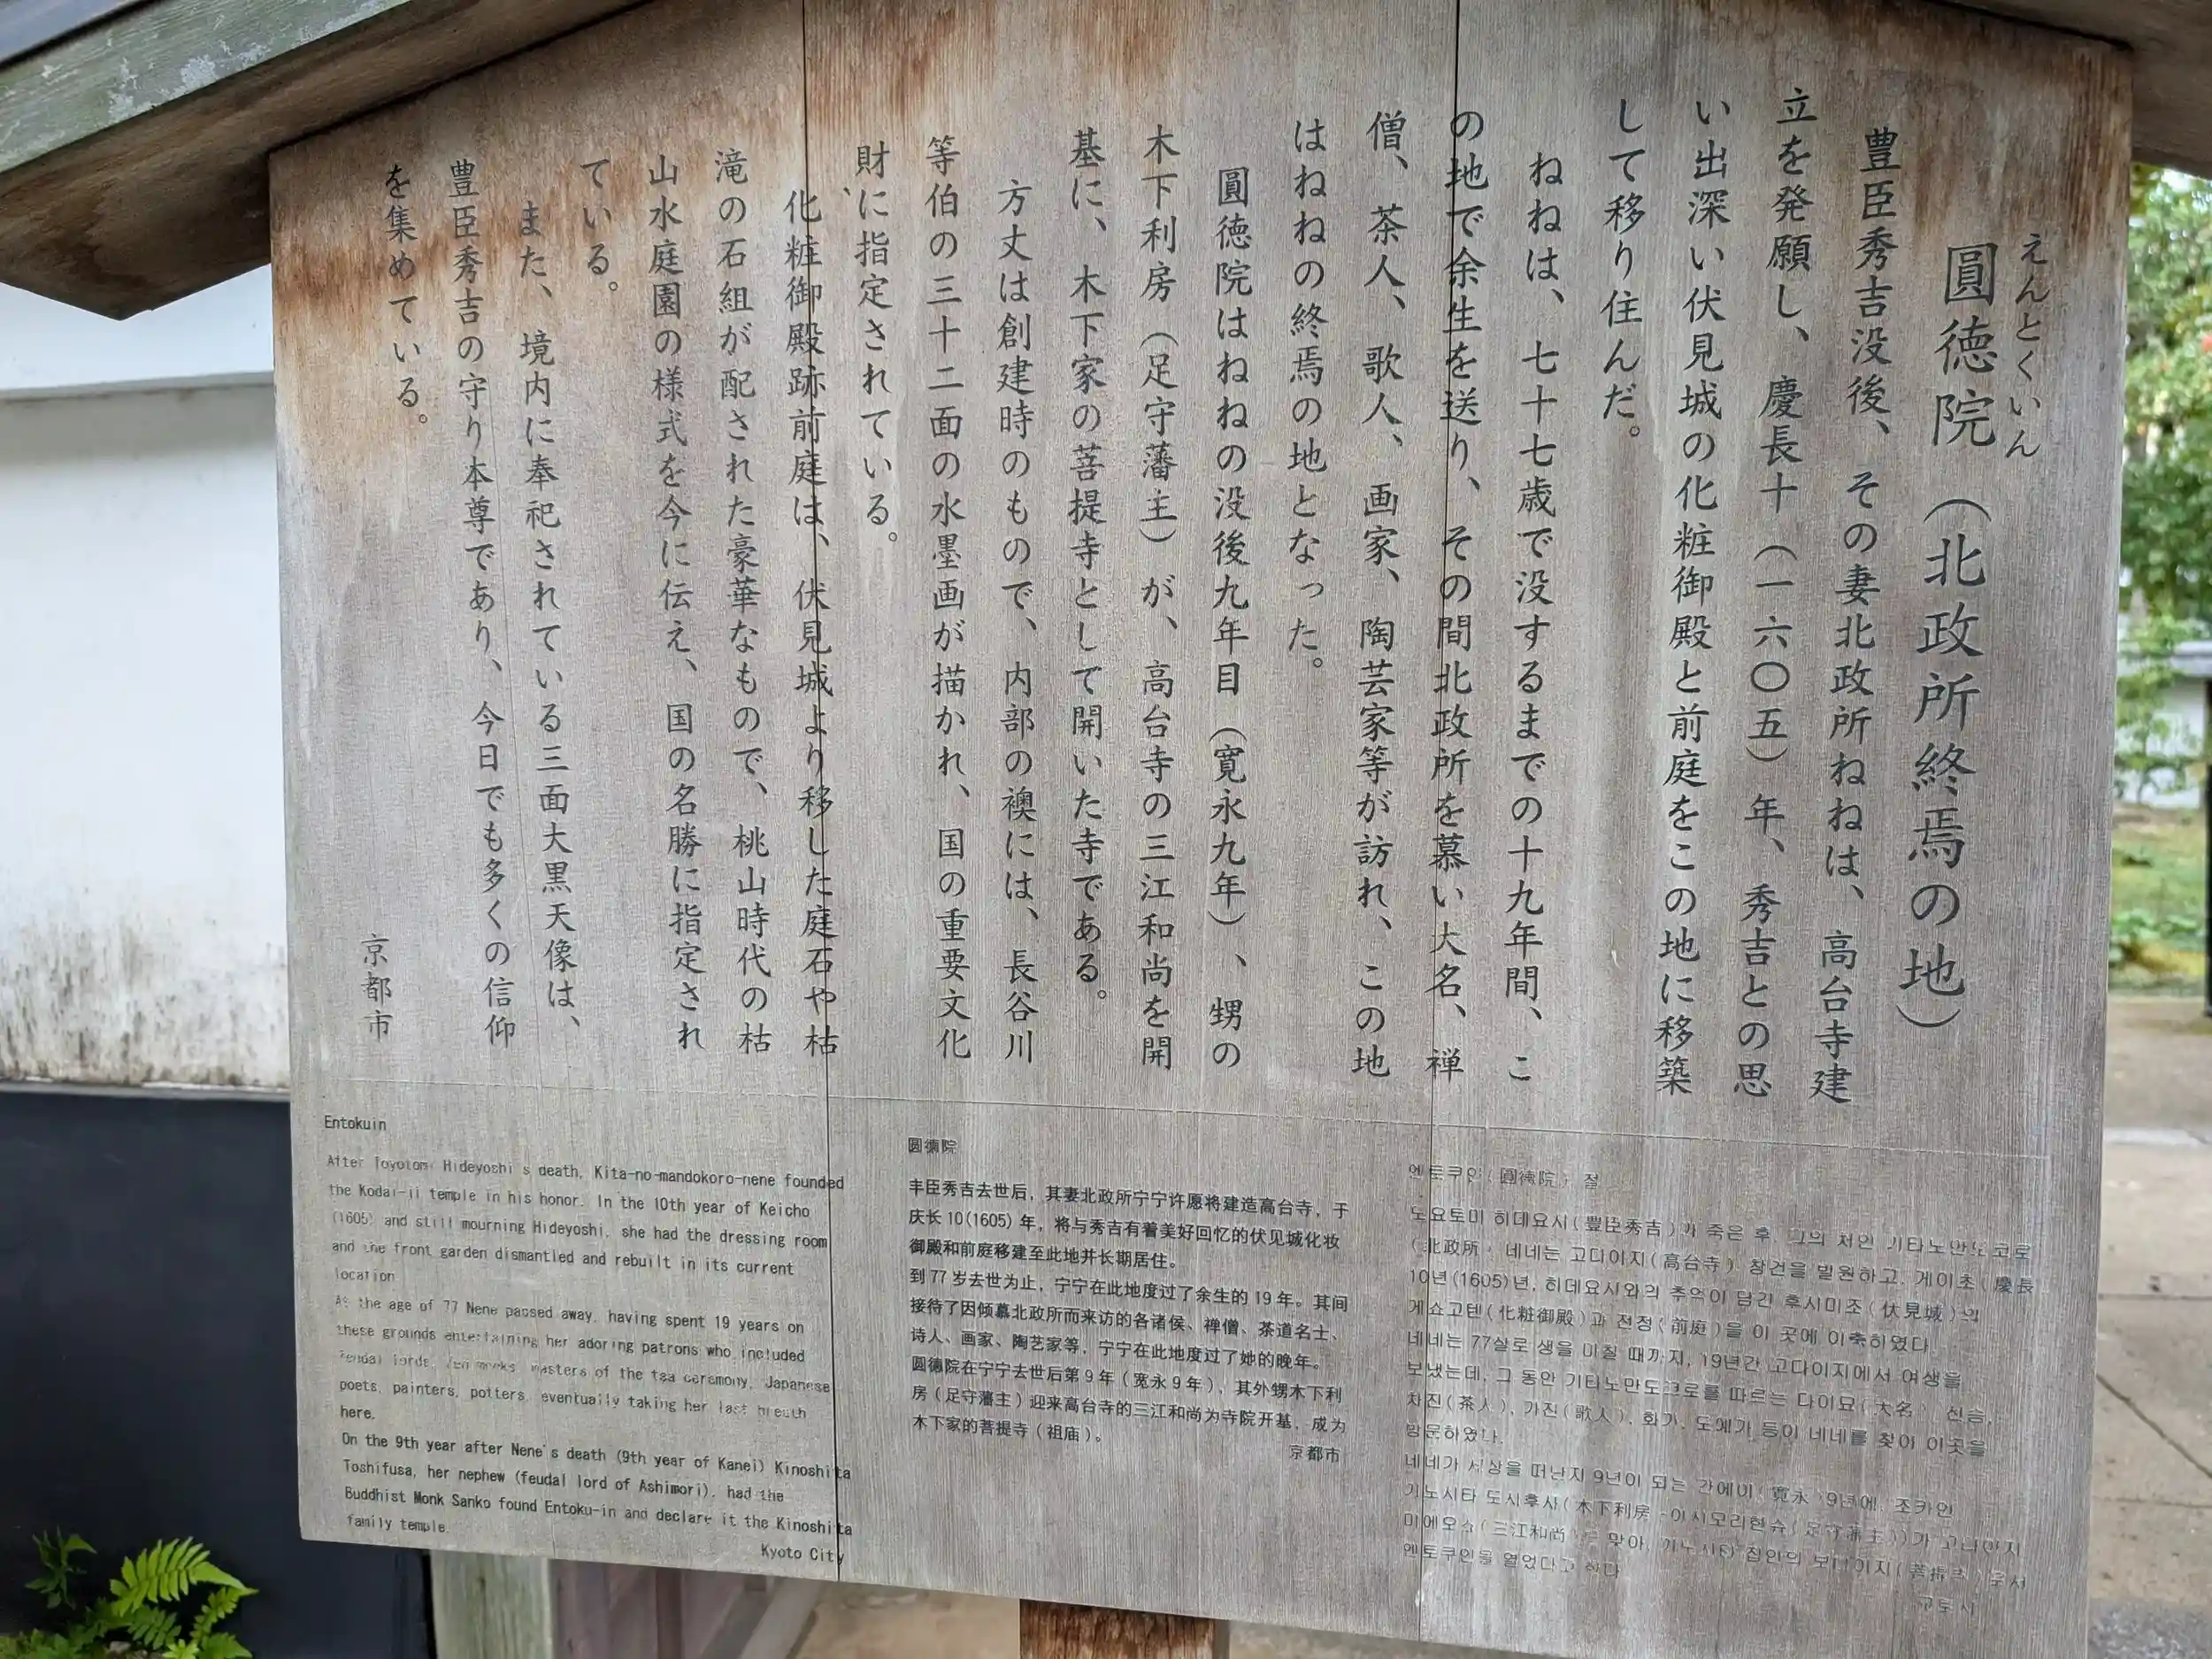 えんとくいん
圓徳院（北政所終焉の地）
豊臣秀吉没後、その妻北政所ねねは、高台寺建
立を発願し、慶長十（一六〇五）年、秀吉との思
い出深い伏見城の化粧御殿と前庭をこの地に移築
して移り住んだ。
ねねは、七十七歳で没するまでの十九年間、こ
の地で余生を送り、その間北政所を慕い大名、禅
僧、茶人、歌人、画家、陶芸家等が訪れ、この地
はねねの終焉の地となった。
圓徳院はねねの没後九年目（寛永九年）、甥の
木下利房（足守藩主）が、高台寺の三江和尚を開
基に、木下家の菩提寺として開いた寺である。
方丈は創建時のもので、内部の襖には、長谷川
等伯の三十二面の水墨画が描かれ、国の重要文化
財に指定されている。
化粧御殿跡前庭は、伏見城より移した庭石や枯
滝の石組が配された豪華なもので、桃山時代の枯
山水庭園の様式を今に伝え、国の名勝に指定され
ている。
また、境内に奉祀されている三面大黒天像は、
豊臣秀吉の守り本尊であり、今日でも多くの信仰
を集めている。
京都市
Entokuin
After Toyotomi Hideyoshi's death, Kita-no-mandokoro-nene founded
the Kodai-ji temple in his honor. In the 10th year of Keicho
(1605) and still mourning Hideyoshi, she had the dressing room
and the front garden dismantled and rebuilt in its current
location
At the age of 77 Nene passed away, having spent 19 years on
these grounds entertaining her adoring patrons who included
feudal lords, Zen monks, masters of the tea ceremony, Japanese
poets, painters, potters, eventually taking her last breath
here.
On the 9th year after Nene's death (9th year of Kanei) Kinoshita
Toshifusa, her nephew (feudal lord of Ashimori), had the
Buddhist Monk Sanko found Entoku-in and declare it the Kinoshita
family temple.
Kyoto City
圆德院
丰臣秀吉去世后，其妻北政所宁宁许愿将建造高台寺，于
庆长10(1605)年，将与秀吉有着美好回忆的伏见城化妆
御殿和前庭移建至此地并长期居住。
到77岁去世为止，宁宁在此地度过了余生的19年。其间
接待了因倾慕北政所而来访的各诸侯、禅僧、茶道名士、
诗人、画家、陶艺家等，宁宁在此地度过了她的晚年。
圆德院在宁宁去世后第9年（宽永9年），其外甥木下利
房（足守藩主）迎来高台寺的三江和尚为寺院开基，成为
木下家的菩提寺（祖庙）。
京都市
엔토쿠인(圓德院) 절
도요토미 히데요시(豊臣秀吉)가 죽은 후, 그의 처인 기타노만도코로
(北政所) 네네는 고다이지(高台寺) 창건을 발원하고, 게이초(慶長)
10년(1605)년, 히데요시와의 추억이 담긴 후시미조(伏見城)의
게쇼고텐(化粧御殿)과 전정(前庭)을 이 곳에 이축하였다.
네네는 77살로 생을 마칠 때까지, 19년간 고다이지에서 여생을
보냈는데, 그 동안 기타노만도코로를 따르는 다이묘(大名), 선승,
차진(茶人), 가진(歌人), 화가, 도예가 등이 네네를 찾아 이곳을
방문하였다.
네네가 세상을 떠난지 9년이 되는 간에이(寛永) 9년에, 조카인
기노시타 도시후사(木下利房
(三江和尚) 맞아, 기노시타 집안의 보다이지
엔토쿠인을 열었다고 하다
교토시